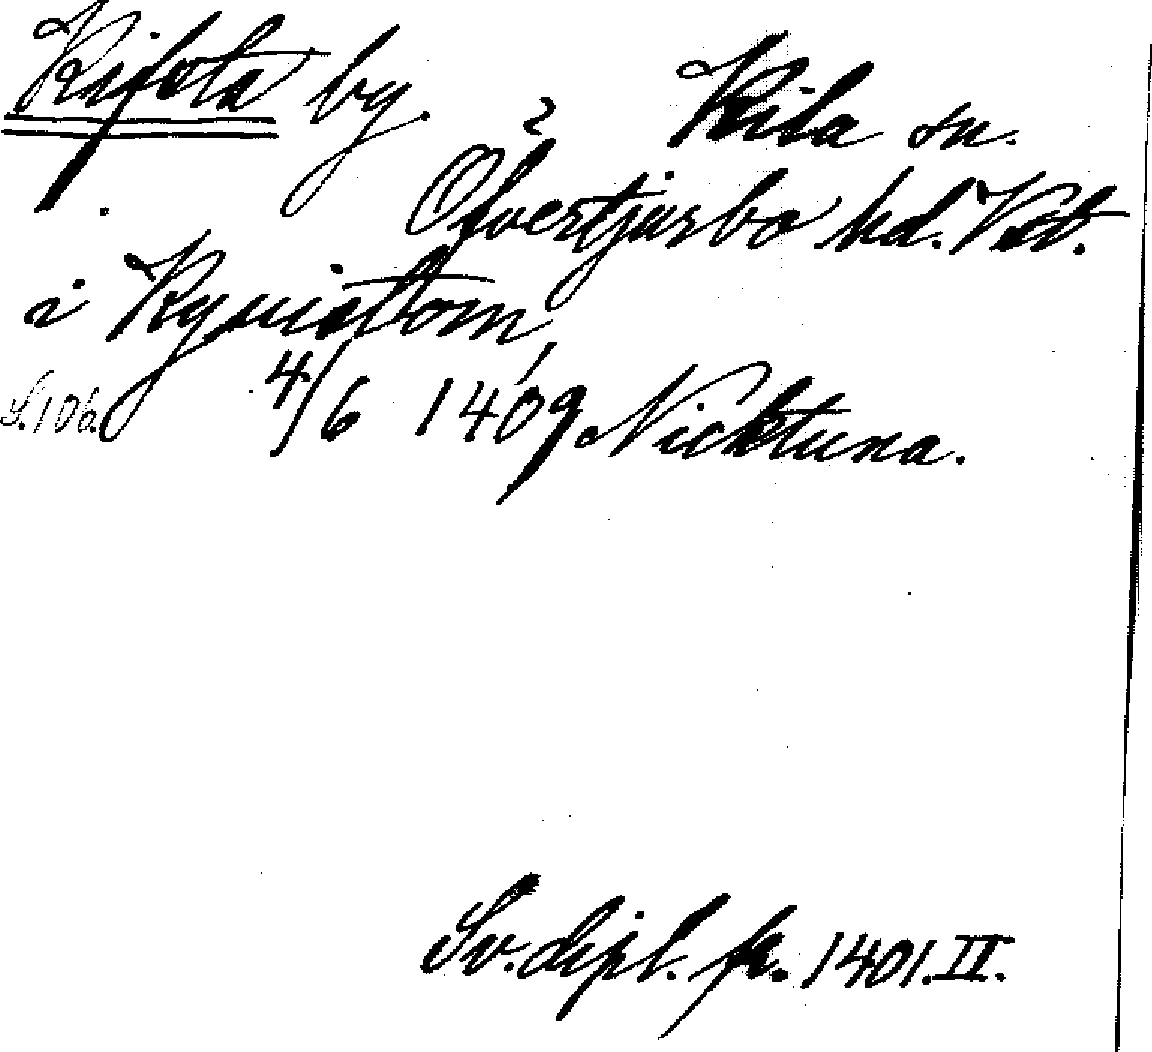 Kifsta by. ? Kila sn.
Öfvertjurbo hd. Vst.
i Kyuistom,
S. 106. 4/6 1409. Nicktuna.
Sv. dipl. fr. 1401. II.